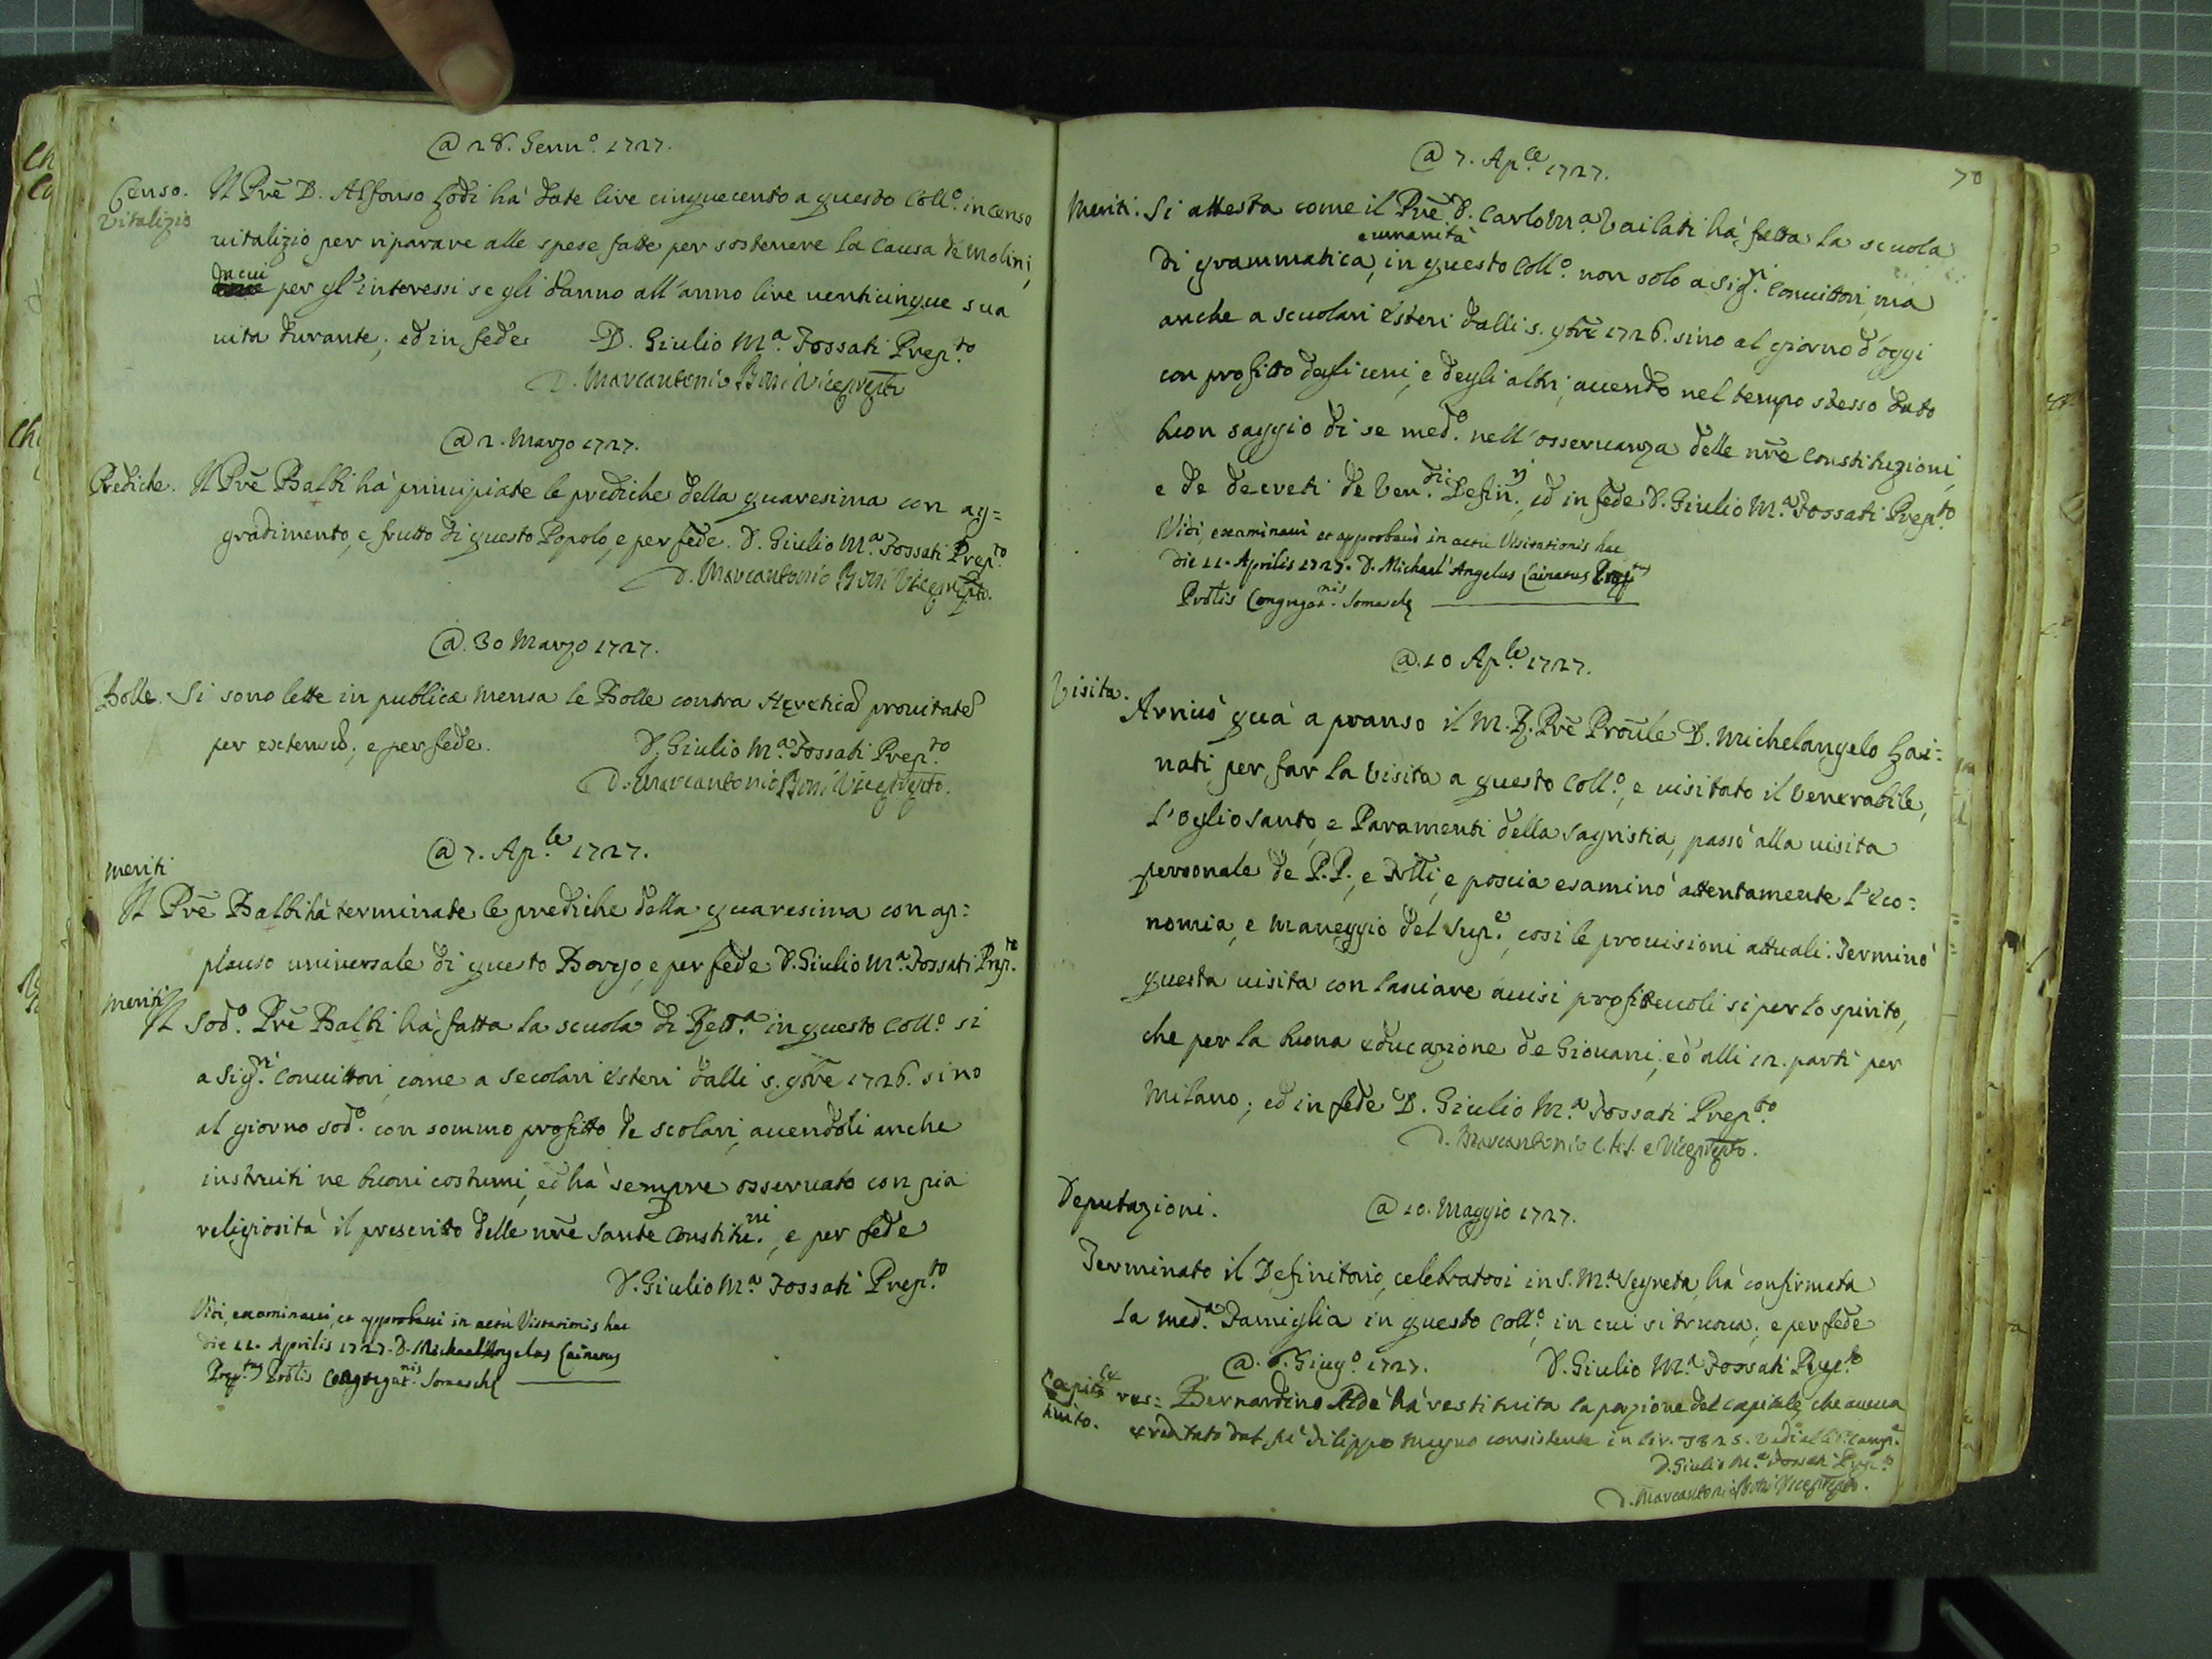 @ 28. Genn.º 1727.
Censo.
Vitalizio
Il Prē D. Alfonso Lodi hà date lire cinquecento a questo Coll.º in censo
uitalizio per riparare alle spese fatte per sostenere la Causa de Molini,
da cui
per gl'interessi se gli danno all'anno lire uenticinque sua
uita durante; ed in fede D. Giulio M.ª Fossati Prep.to
D. Marcantonio Boni Viceprepto
@ 2. Marzo 1727.
Prediche. Il Prē Balbi hà principiate le prediche della quaresima con ag=
gradimento, e frutto di questo Popolo, e per fede. D. Giulio M.ª Fossati Prep.to
D. Marcantonio Boni Viceprepto.
@. 30 Marzo 1727.
Bolle. Si sono lette in publica mensa le Bolle contra Heretica prauitate
per extensū; e per fede. D. Giulio M.ª Fossati Prep.to
D. Marcantonio Boni Viceprepto.
@ 7. Ap.le 1727.
meriti
Il Prē Balbi hà terminate le prediche della quaresima con ap=
plauso uniuersale di questo Borgo, e per fede D. Giulio M.ª Fossati Prep.to
meriti
Il sod.º Prē Balbi hà fatta la scuola di Rett.ª in questo Coll.º si
a Sig.ri Conuittori, come a secolari esteri dalli 5. 9bre 1726. sino
al giorno sod.º con sommo profitto de scolari, auendoli anche
instruiti ne buoni costumi, ed hà sempre osseruato con pia
religiosità il prescritto delle nrē sante Constitu.ni, e per fede
D. Giulio M.ª Fossati Prep.to
Vidi, examinaui, et approbaui in actu Visitationis hac
die 11. Aprilis 1727. D. Michael Angelus Cainatus
Prep.tus Prōlis Congregat.nis Somaschę
70
@ 7. Ap.le 1727.
Meriti. Si attesta come il Prē D. Carlo M.ª Vailati hà fatta la scuola
e umanità
di grammatica, in questo Coll.º non solo a Sig.ri Conuittori, ma
anche a scuolari esteri dalli 5. 9bre 1726. sino al giorno d'oggi
con profitto degli uni, e degli altri, auendo nel tempo stesso dato
buon saggio di se med.º nell'osseruanza delle nrē Constituzioni,
e de decreti de Ven.di Defin.ri, ed in fede D. Giulio M.ª Fossati Prep.to
Vidi, examinaui et approbaui in actu Visitationis hac
die 11. Aprilis 1727. D. Michael Angelus Cainatus Prep.tus
Prōlis Congregat.nis Somaschę
@. 10 Ap.le 1727.
Visita.
Arriuò quà a pranso il M. R. Prē Prōule D. Michelangelo Gai=
nati per far la Visita a questo Coll.º, e uisitato il Venerabile,
l'Oglio santo, e Paramenti della sagristia, passò alla uisita
personale de P.P., e Frtli, e poscia esaminò attentamente l'eco=
nomia, e maneggio del Sup.e, cosi le prouisioni attuali. Terminò
questa uisita con lasciare auisi profitteuoli si per lo spirito,
che per la buona educazione de Giouani; ed'alli 12. parti per
Milano; ed in fede D. Giulio M.ª Fossati Prep.to
D. Marcantonio C.R.S. e Viceprepto.
Deputazioni. @ 10. Maggio 1727.
Terminato il Definitorio, celebratosi in S. M.ª Segreta, hà confirmata
la med.ª Famiglia in questo Coll.º, in cui si truoua; e per fede
@. 8. Giug.º 1727. D. Giulio M.ª Fossati Prep.to
Capit.le res=
tituito.
Bernardino Aldè hà restituita la pozione del capitale, che aueua
ereditato dal fù Filippo Magno consistente in lir. 3825. Vedi
D. Giulio M.ª Fossati Prep.to
D. Marcantonio Boni Viceprepto.